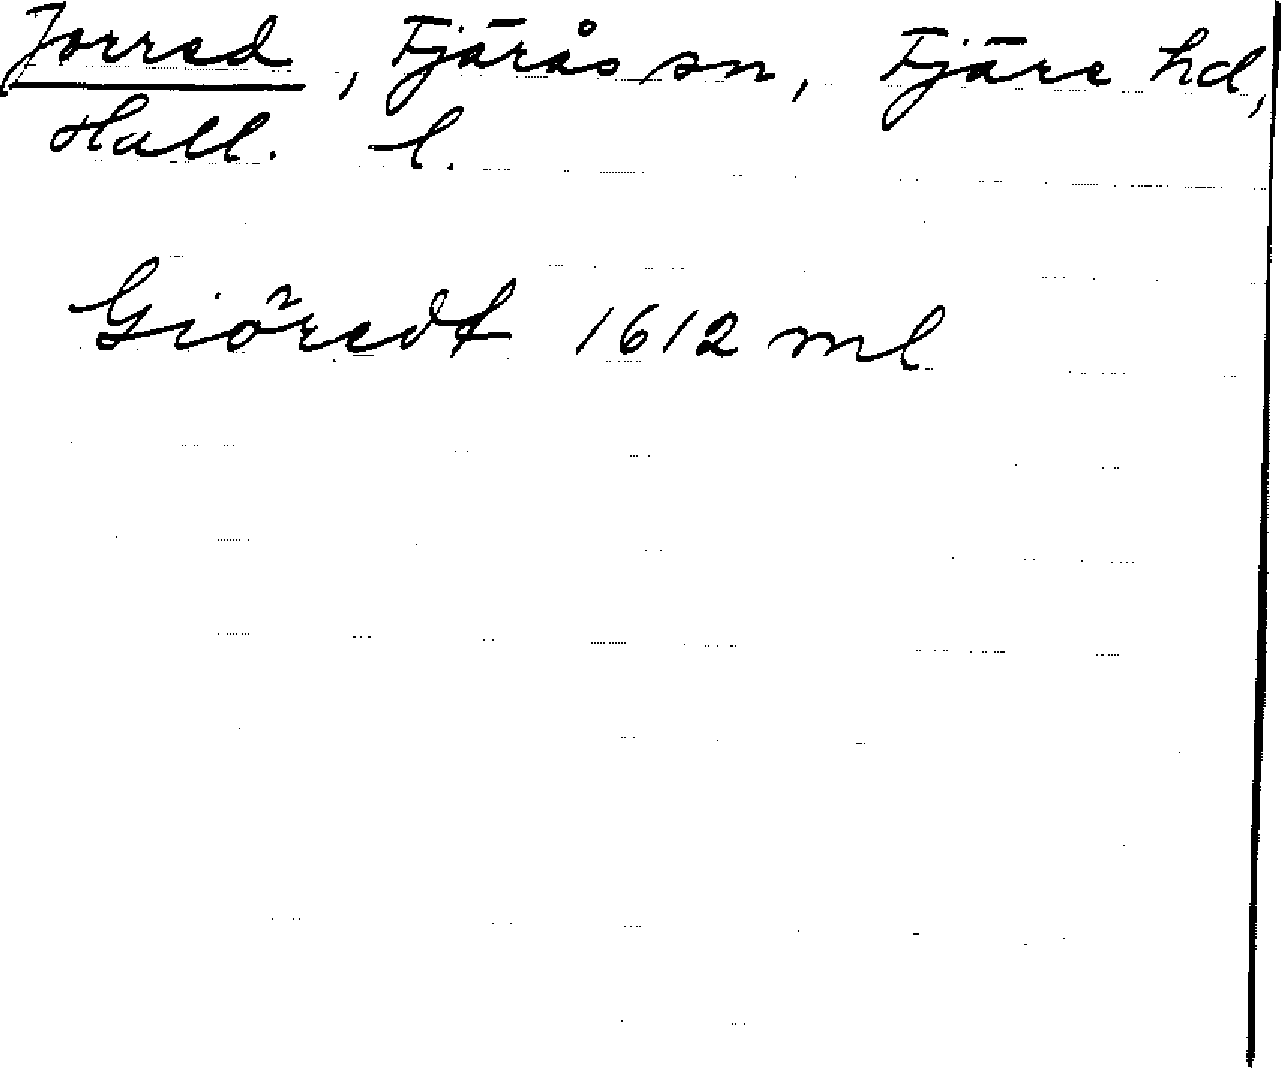 Jorred, Fjärås sn, Fjäre hd,
Hall. l.
Giöredt 1612 ml